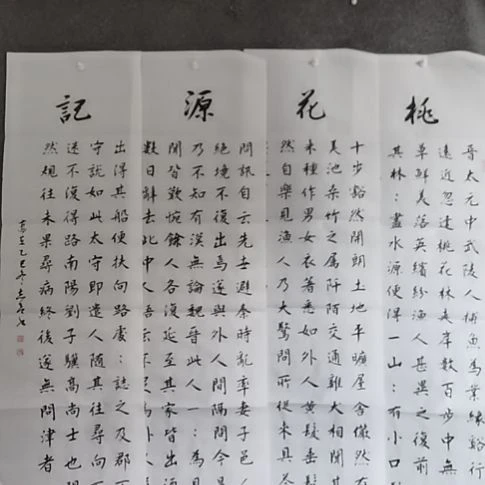 桃花源記
晉太元中武陵人捕魚為業緣谿行
遠近忽逢桃花林夹岸數百步中無
草鮮美落英繽紛漁人甚異之復前
其林:盡水源便得一山:有小口
十步豁然開朗土地平曠屋舍儼然有
美池桑竹之属阡陌交通雞犬相聞其
来種作男女衣著悉如外人黄髮垂髫
然自樂見漁人乃大驚問所從来具答
問訊自云先世避秦時亂率妻子邑人
絕境不復出焉遂與外人間隔問今是
乃不知有漢無論魏晉此人一:為具
聞皆歎惋餘人各復延至其家皆出酒
數日辭去此中人語云不足為外人
出得其船便扶向路處:誌之及郡下
守說如此太守即遣人随其往尋向
迷不復得路南陽劉子驥高尚士也聞
然規往未果尋病終後遂無問津者